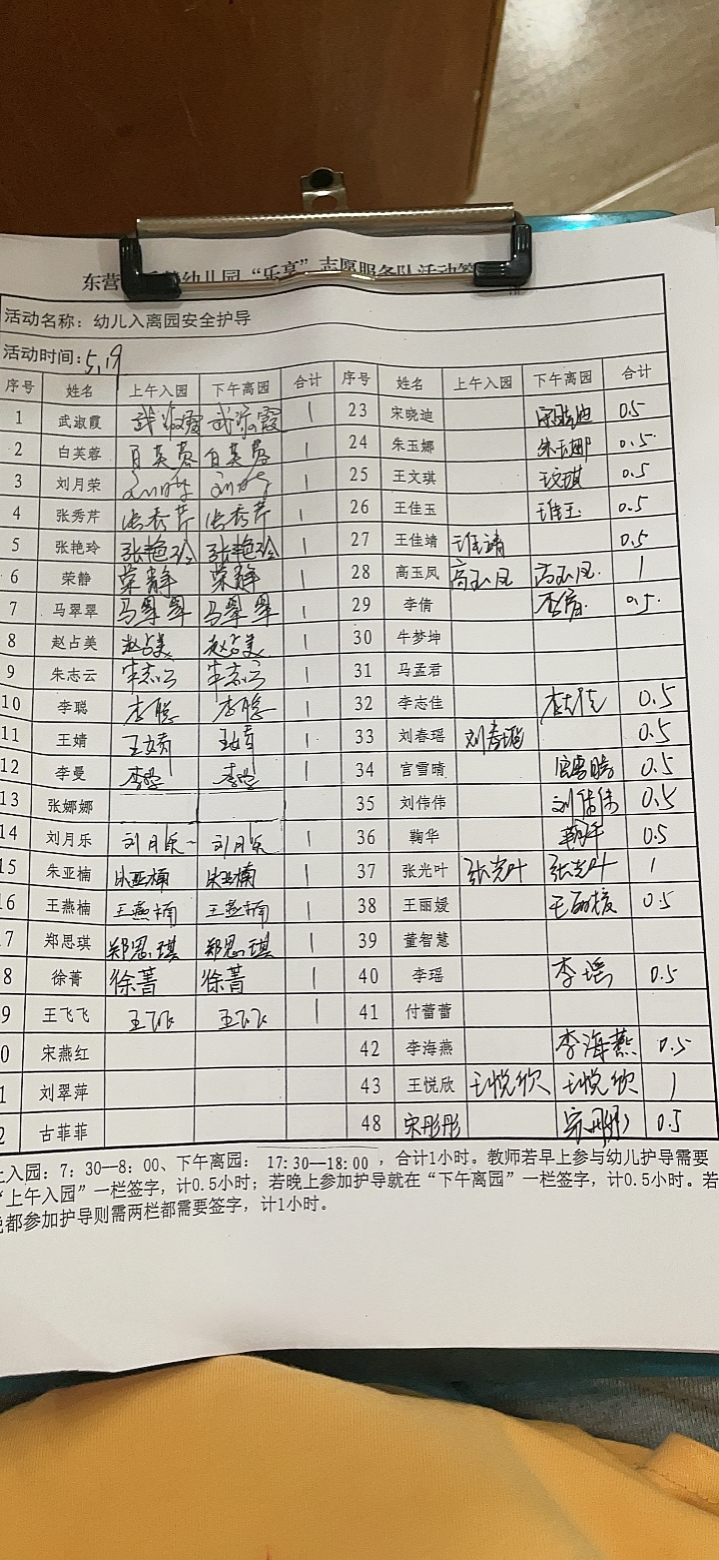 东营 幼儿园“乐享”志愿服务队活动签
活动名称：幼儿入离园安全护导
活动时间：5.19
序号 姓名 上午入园 下午离园 合计 序号 姓名 上午入园 下午离园 合计
1 武淑霞 武淑霞 武淑霞 1 23 宋晓迪 宋晓迪 0.5
2 白芙蓉 白芙蓉 白芙蓉 1 24 朱玉娜 朱玉娜 0.5
3 刘月荣 刘月荣 刘月荣 1 25 王文琪 王文琪 0.5
4 张秀芹 张秀芹 张秀芹 1 26 王佳玉 王佳玉 0.5
5 张艳玲 张艳玲 张艳玲 1 27 王佳靖 王佳靖 0.5
6 荣静 荣静 荣静 1 28 高玉凤 高玉凤 高玉凤 1
7 马翠翠 马翠翠 马翠翠 1 29 李倩 李倩 0.5
8 赵占美 赵占美 赵占美 1 30 牛梦坤
9 朱志云 朱志云 朱志云 1 31 马孟君
10 李聪 李聪 李聪 1 32 李志佳 李志佳 0.5
11 王婧 王婧 王婧 1 33 刘春瑶 刘春瑶 0.5
12 李曼 李曼 李曼 1 34 官雪晴 官雪晴 0.5
13 张娜娜 35 刘伟伟 刘伟伟 0.5
14 刘月乐 刘月乐 刘月乐 1 36 鞠华 鞠华 0.5
15 朱亚楠 朱亚楠 朱亚楠 1 37 张光叶 张光叶 张光叶 1
16 王燕楠 王燕楠 王燕楠 1 38 王丽媛 王丽媛 0.5
7 郑思琪 郑思琪 郑思琪 1 39 董智慧
8 徐菁 徐菁 徐菁 1 40 李瑶 李瑶 0.5
9 王飞飞 王飞飞 王飞飞 1 41 付蕾蕾
0 宋燕红 42 李海燕 李海燕 0.5
1 刘翠萍 43 王悦欣 王悦欣 王悦欣 1
2 古菲菲 48 宋彤彤 宋彤彤 0.5
上入园：7：30—8：00、下午离园：17:30—18:00，合计1小时。教师若早上参与幼儿护导需要
“上午入园”一栏签字，计0.5小时；若晚上参加护导就在“下午离园”一栏签字，计0.5小时。若
晚都参加护导则需两栏都需要签字，计1小时。